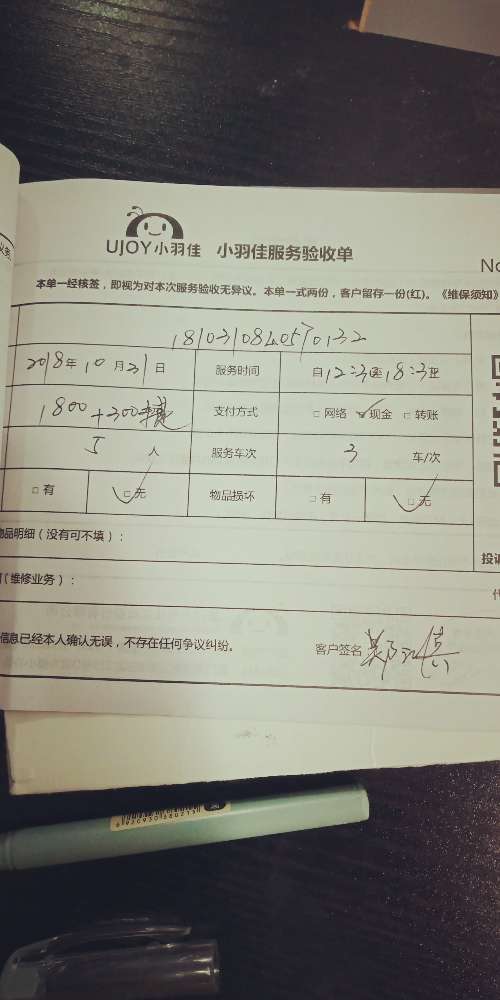 义务
UJOY小羽佳 小羽佳服务验收单
No
本单一经核签，即视为对本次服务验收无异议。本单一式两份，客户留存一份(红)。《维保须知》
1810310840570132
2018年10月31日 服务时间 自12:3至18:3
1800+300 支付方式 □网络 ☑现金 □转账
5人 服务车次 3 车/次
□有 ☑无 物品损坏 □有 ☑无
物品明细（没有可不填）：
投诉
(维修业务)：
信息已经本人确认无误，不存在任何争议纠纷。
客户签名